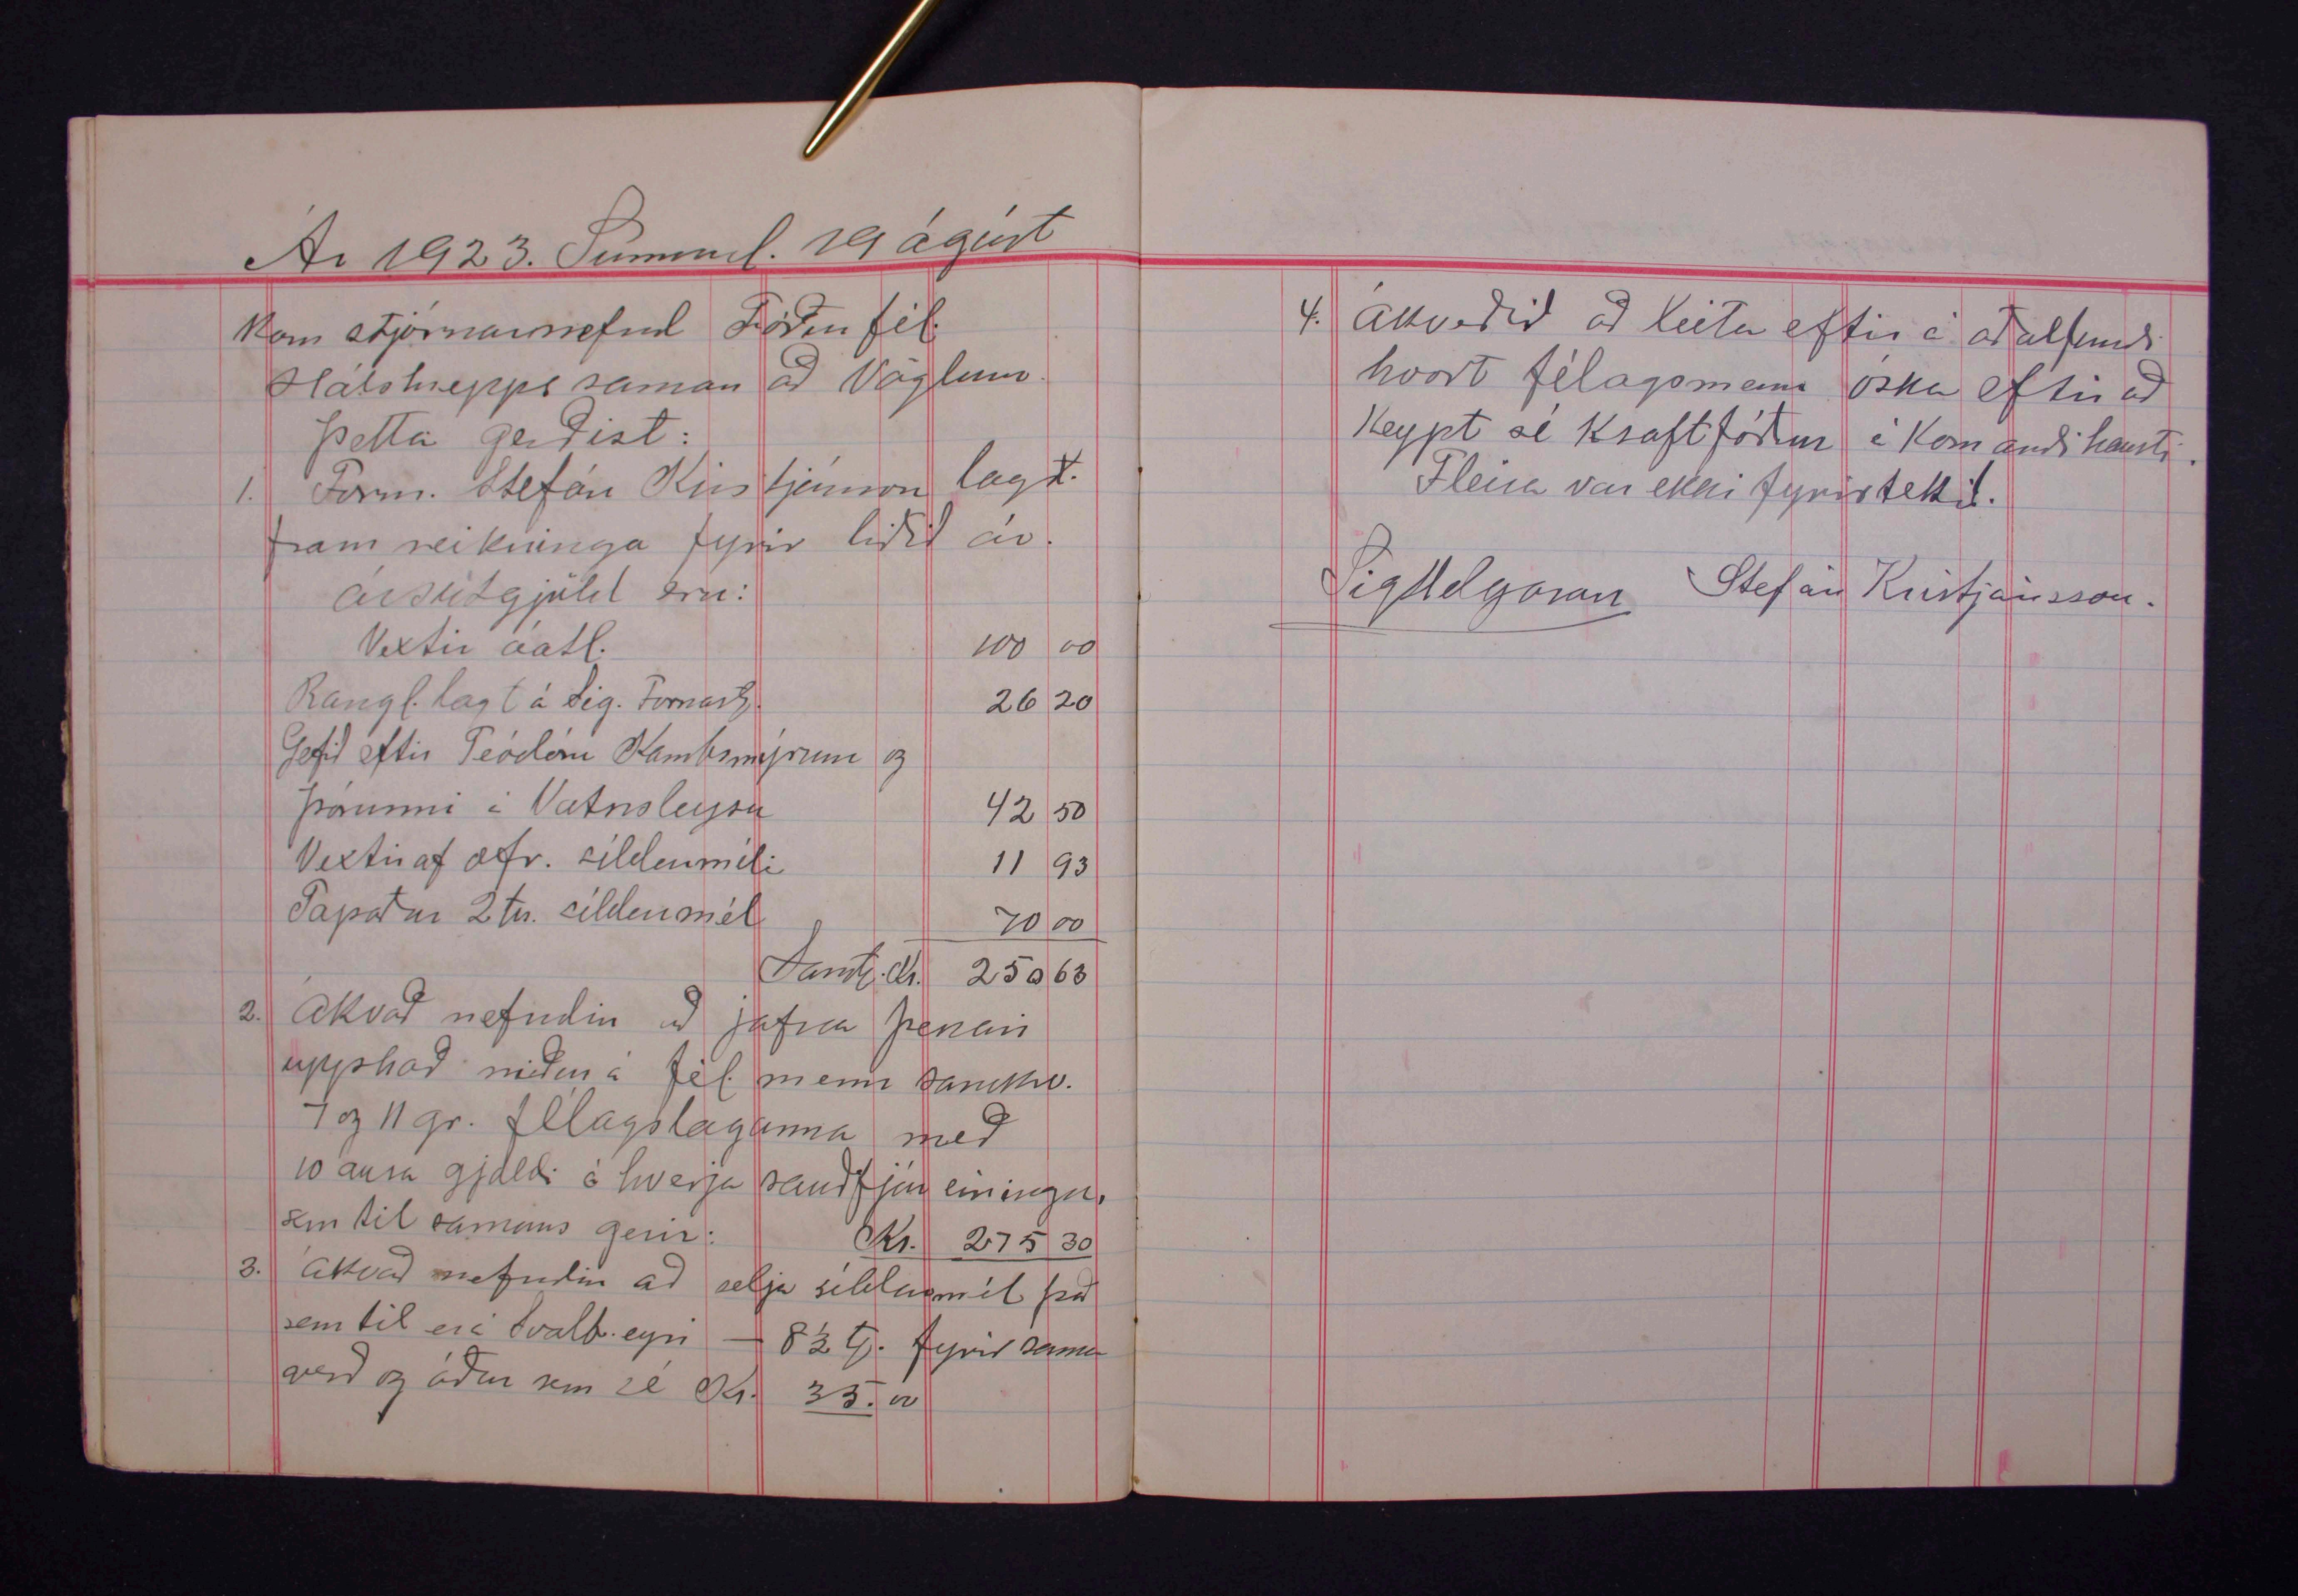 Ár 1923. Sunnud. 19 ágúst
Kom stjórnarnefnd Fóðurfél.
Hálshrepps saman að Vöglum.
Þetta gerðist:
1. Form. Stefán Kristjánsson lagt.
fram reikninga fyrir liðið ár.
ársútgjöld eru:
Vextir óatl. 100 00
Rangl. lagt á Sig. Fornast. 26 20
Gefið eftir Teódóru Kambsmýrum og
Þórunni á Vatnsleysu 42 50
Vextir af ofr. síldarméli 11 93
Tapaðar 2 tn. síldarmél 70 00
Samt. Kr. 250 63
2. Ákvað nefndin að jafna þenan
upphað niður á fél. menn samkv.
7 og 11 gr. félagslaganna með
10 aura gjaldi á hverja sauðfjár einingu,
sem til samans gerir: Kr. 275 30
3. Ákvað nefndin að selja síldarmél það
sem til er á Svalb.eyri — 8½ t. fyrir sama
verð og áður sem sé Kr. 35.00
4. Ákveðið að leita eftir á aðalfundi
hvort félagsmenn óska eftir að
keypt sé kraftfóður á komandi hausti.
Fleira var ekki fyrirtekið.
Stefán Kristjánsson.